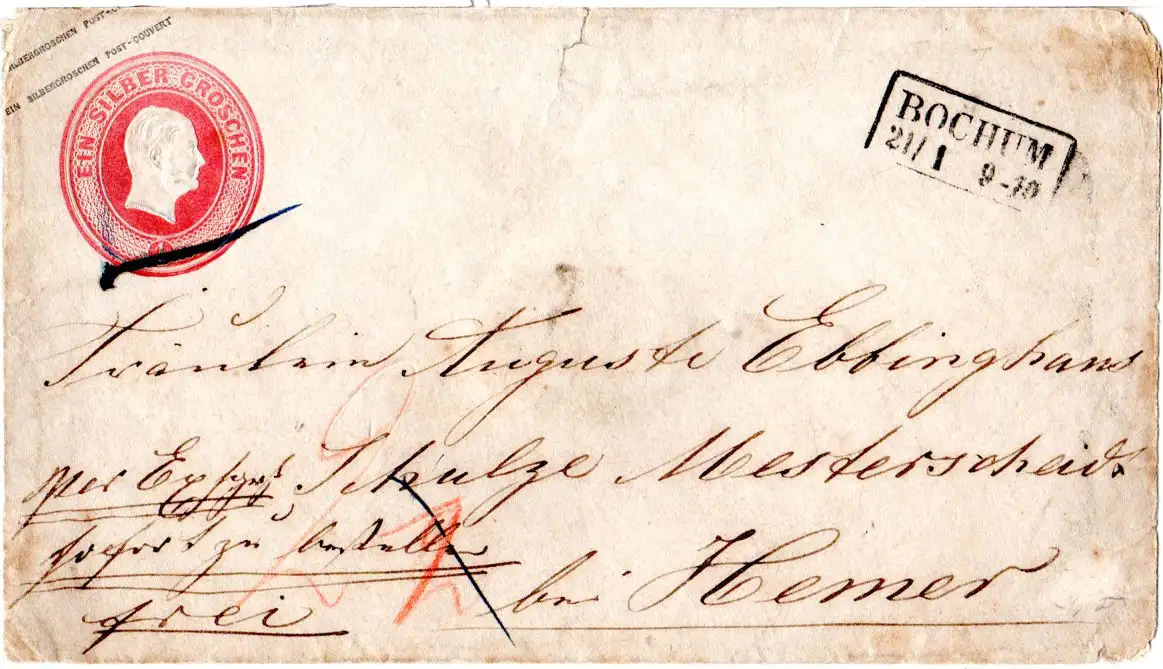 SILBERGROSCHEN POST-COUVERT
EIN SILBERGROSCHEN POST-COUVERT
EIN SILBER GROSCHEN
1
BOCHUM
21/1 9-10
Fräulein Auguste Ebbinghaus
Schulze Mesterscheidt
per Express
sofort zu bestellen
frei
bei Hemer